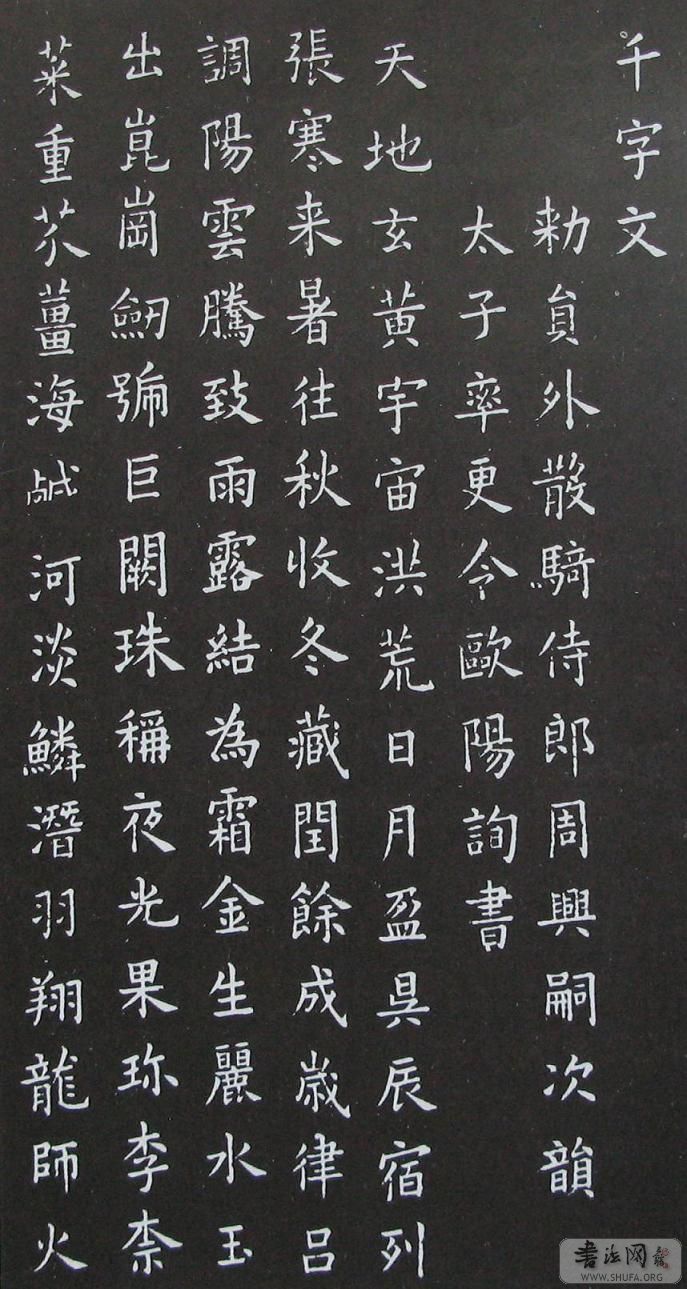 千字文
勑貟外散騎侍郎周興嗣次韻
太子率更令歐陽詢書
天地玄黃宇宙洪荒日月盈昃辰宿列
張寒来暑往秋收冬藏閏餘成嵗律呂
調陽雲騰致雨露結為霜金生麗水玉
出崑崗劒號巨闕珠稱夜光果珎李柰
菜重芥薑海鹹河淡鱗潛羽翔龍師火
書法网
WWW.SHUFA.ORG